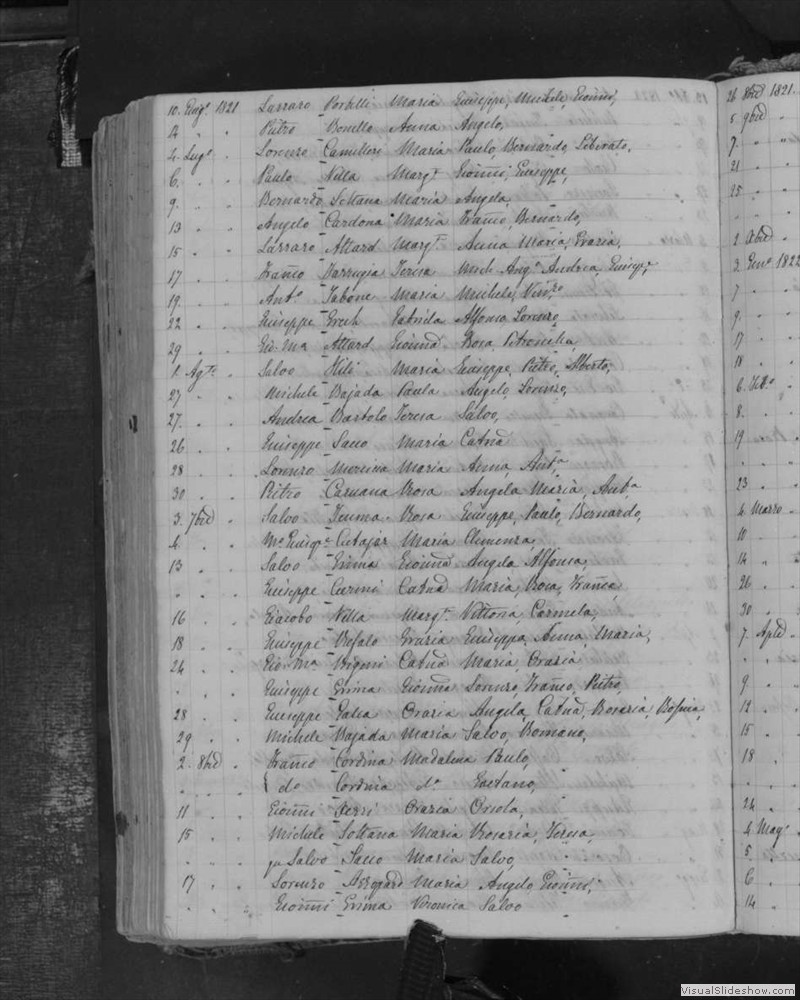 10. Giug.o 1821 Lazzaro Borbelli Maria Giuseppe, Michele, Gioñni,
4 " . Pietro Bonello Anna Angelo,
4. Lug.o . Lorenzo Camilleri Maria Paulo, Bernardo, Liberato,
6. . . Paulo Villa Marg.ta Gioñni, Giuseppe,
9. . . Bernardo Soltana Maria Angela,
13 . . Angelo Cardona Maria Franco, Bernardo,
15 . . Lazzaro Attard Marg.ta Anna Maria, Grazia,
17 . . Franco Farrugia Teresa Mich: Ang.o Andrea, Giusep.e
19. . . Ant.o Tabone Maria Michele, Vin.zo
22 . . Giuseppe Grech Alfonso Lorenzo,
29 . . Gio: Ma Attard Gioñna Rosa, Petronilla,
1. Ag.to . Salvo Maria Giuseppe, Pietro, Alberto,
27 . . Michele Bajada Paula Angelo, Lorenzo,
27. . . Andrea Bartolo Teresa Salvo,
26 . . Giuseppe Maria Catña
28 . . Lorenzo Messina Maria Anna, Ant.a
30 . . Pietro Caruana Rosa Angela Maria, Ant.a
3. 7bre . Salvo Rosa Giuseppe, Paulo, Bernardo,
4. . . Ma Giusp.e Cutajar Maria Clemenza,
13 . . Salvo Grima Gioñna Angela Alfonsa,
. . . Giuseppe Curmi Catña Maria, Rosa, Franca
16 . . Giacobo Villa Marg.ta Vittoria Carmela,
18 . . Giuseppe Refalo Grazia Giuseppa, Anna, Maria,
24 . . Gio: Ma Catña Maria Grazia
. . . Giuseppe Grima Gioñna Lorenzo, Franco, Pietro,
28 . . Giuseppe Galea Orazia Angela, Catña, Rosaria,
29 . . Michele Bajada Maria Salvo, Romano,
2. 8bre . Franco Cordina Madalena Paulo,
. . . do Cordina da Gaetano,
11 . . Gioñni Orazia Orsola,
15 . . Michele Soltana Maria Rosaria, Teresa,
. . . qm Salvo Maria Salvo,
17 . . Lorenzo Azzopard Maria Angelo Gioñni,
. . . Gioñni Grima Veronica Salvo
26 8bre 1821.
5 9bre
7. . .
21 . .
25 . .
2. Xbre
3. Gen.o 1822
7 . .
9. .
17 .
18 .
6. .
8. .
19 .
23 . .
4 Marzo
10 .
14 .
26 .
30 .
7. Aple
9 .
12 .
15 .
18 .
24 .
4 Mag.o
5 .
6 .
14 .
VisualSlideshow.com